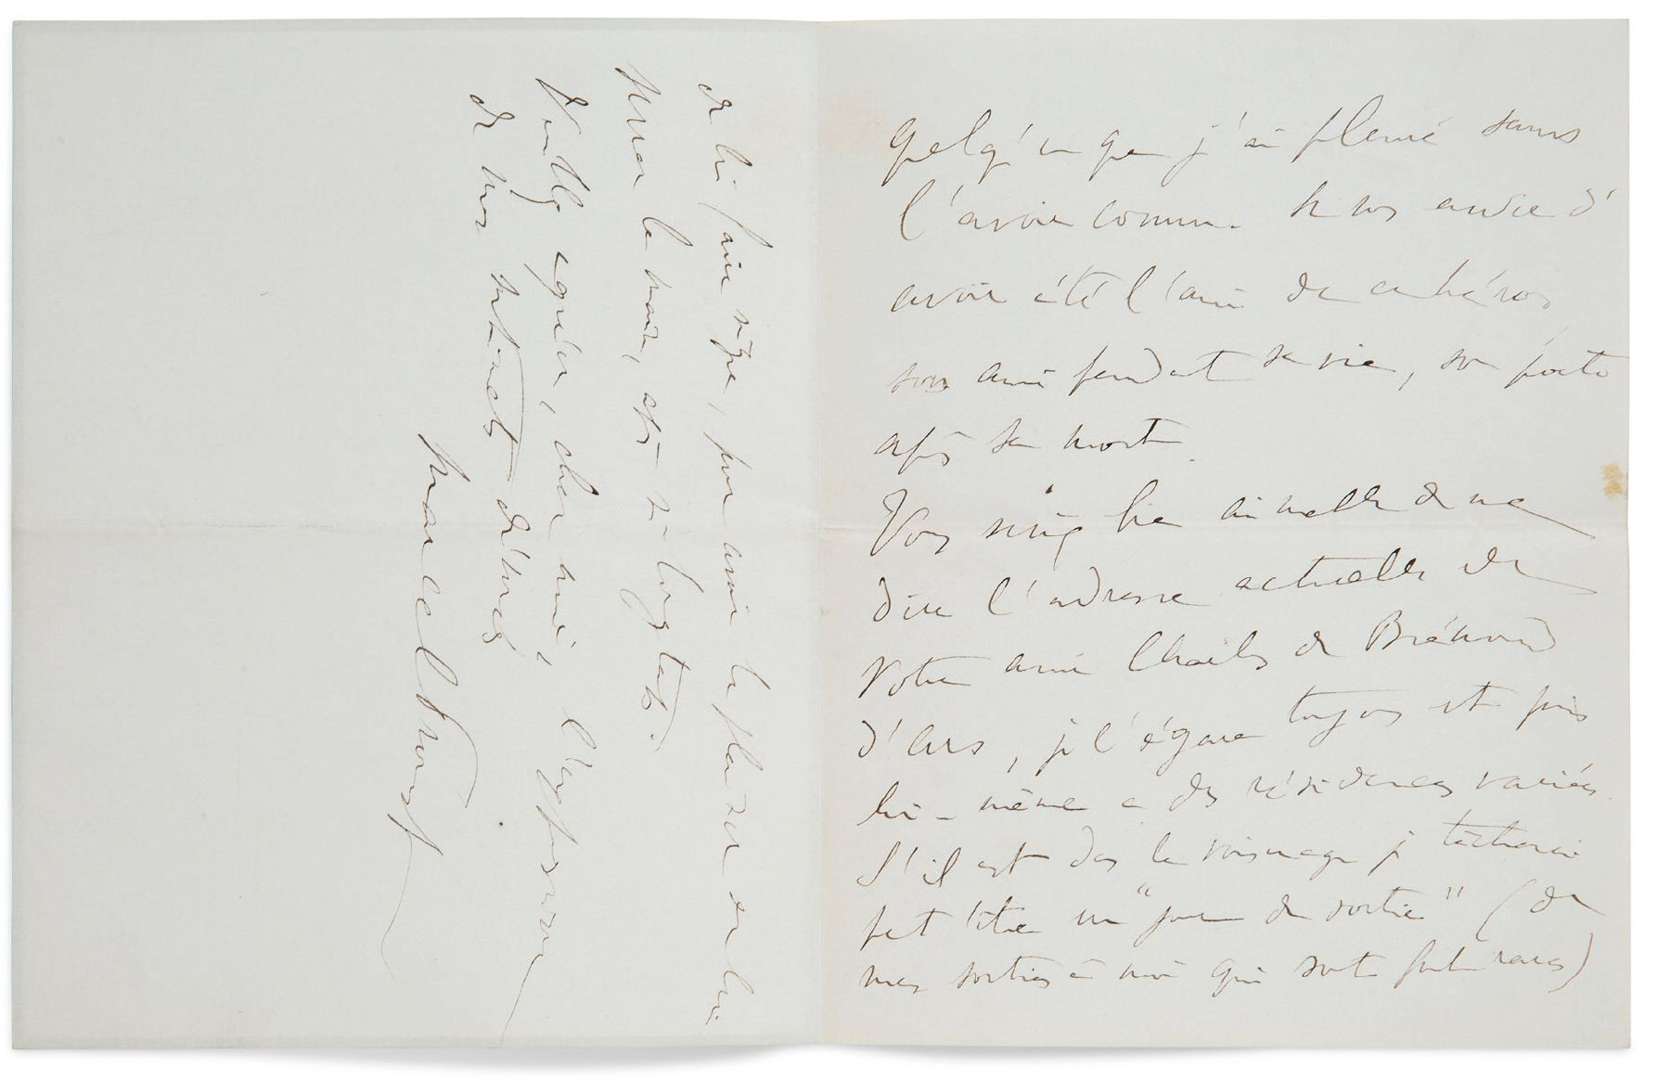 quelqu'un que j'ai pleuré sans
l'avoir connu. Je vous envie d'
avoir été l'ami de ce héros
son ami pendant sa vie, son poète
après sa mort.
Vous seriez bien aimable de me
dire l'adresse actuelle de
votre ami Charles de
d'Ars, je l'égare toujours et puis
lui-même a des résidences variées.
S'il est dans le voisinage je tâcherai
peut'être un "jour de sortie" (de
mes sorties à moi qui sont fort rares)
de lui faire signe, pour avoir le plaisir de lui
serrer la main, après si longtemps.
Veuillez agréer, cher ami, l'expression
de mes sentiments dévoués
Marcel Proust